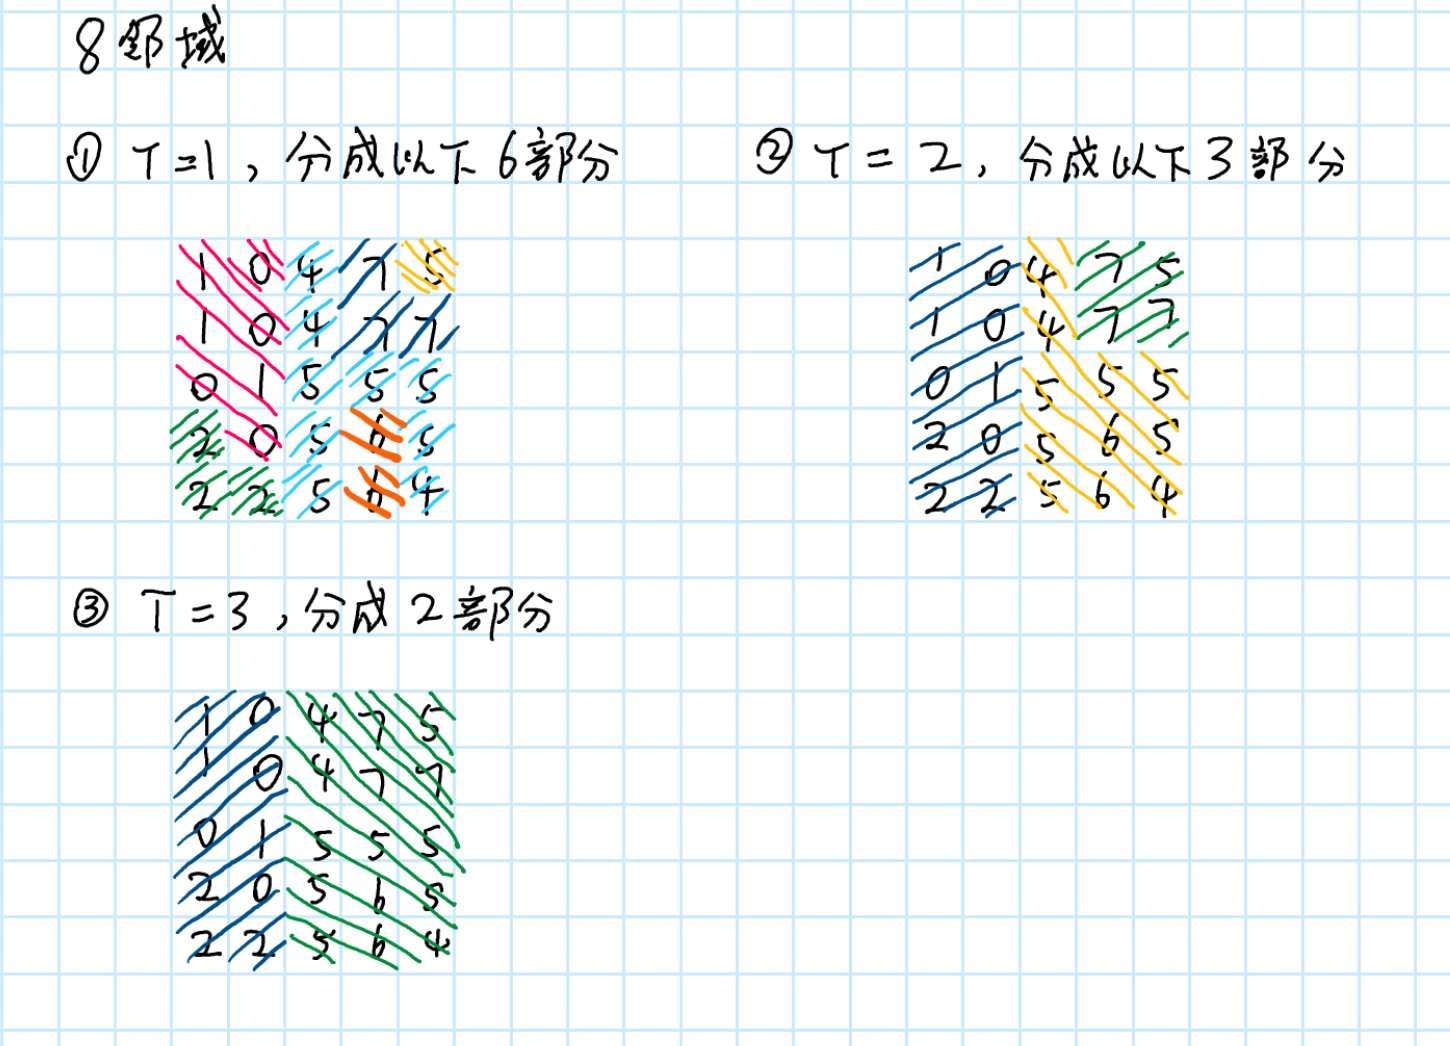 8邻域
① T=1, 分成以下6部分
1 0 4 7 5
1 0 4 7 7
0 1 5 5 5
2 0 5 6 5
2 2 5 6 4
② T=2, 分成以下3部分
1 0 4 7 5
1 0 4 7 7
0 1 5 5 5
2 0 5 6 5
2 2 5 6 4
③ T=3, 分成2部分
1 0 4 7 5
1 0 4 7 7
0 1 5 5 5
2 0 5 6 5
2 2 5 6 4